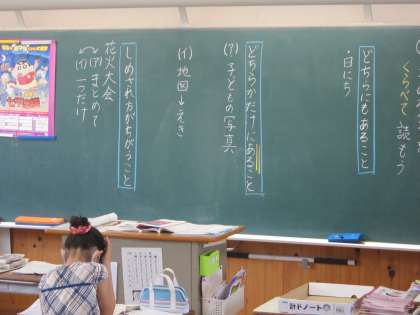 くらべて読もう
どちらにもあること
・日にち
どちらかだけにあること
(ア)子どもの写真
(イ)地図→えき
しめされ方がちがうこと
花火大会
(ア)まとめて
(イ)一つだけ
計ドノート